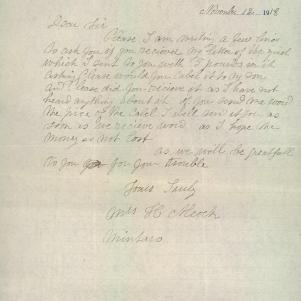 November 12 1918
Dear Sir
Please I am writing a few lines
to ask you if you recieve my letter of the
which I sent to you with 5 pounds in it
asking Please would you Cabel it to my son
and Please did you recieve it as I have not
heard anything about it. if you send me word
the price of the Cabel I will send it you as
soon as we recieve word as I hope the
money is not Lost
as we will be greatfull
to you for your trouble
Yours Truly
Mrs H Alcock
Mintaro